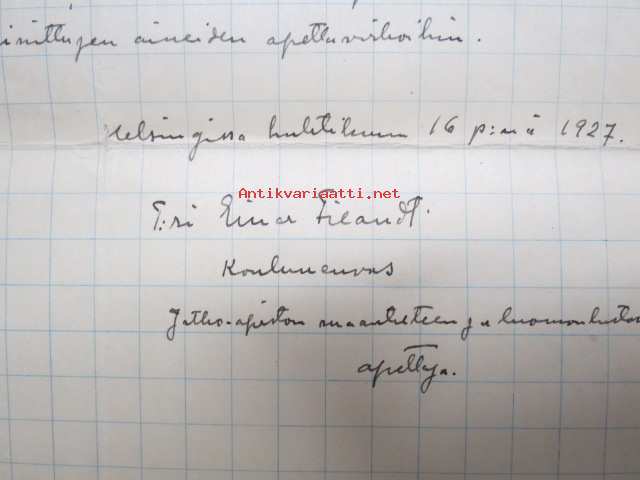 ainittujen aineiden opettavirkoihin.
Helsingissä huhtikuun 16 p:nä 1927.
Antikvariaatti.net
T:ri Einar Fieandt.
Kouluneuvos
Jatko-opiston maantieteen ja luonnonhistorian
opettaja.